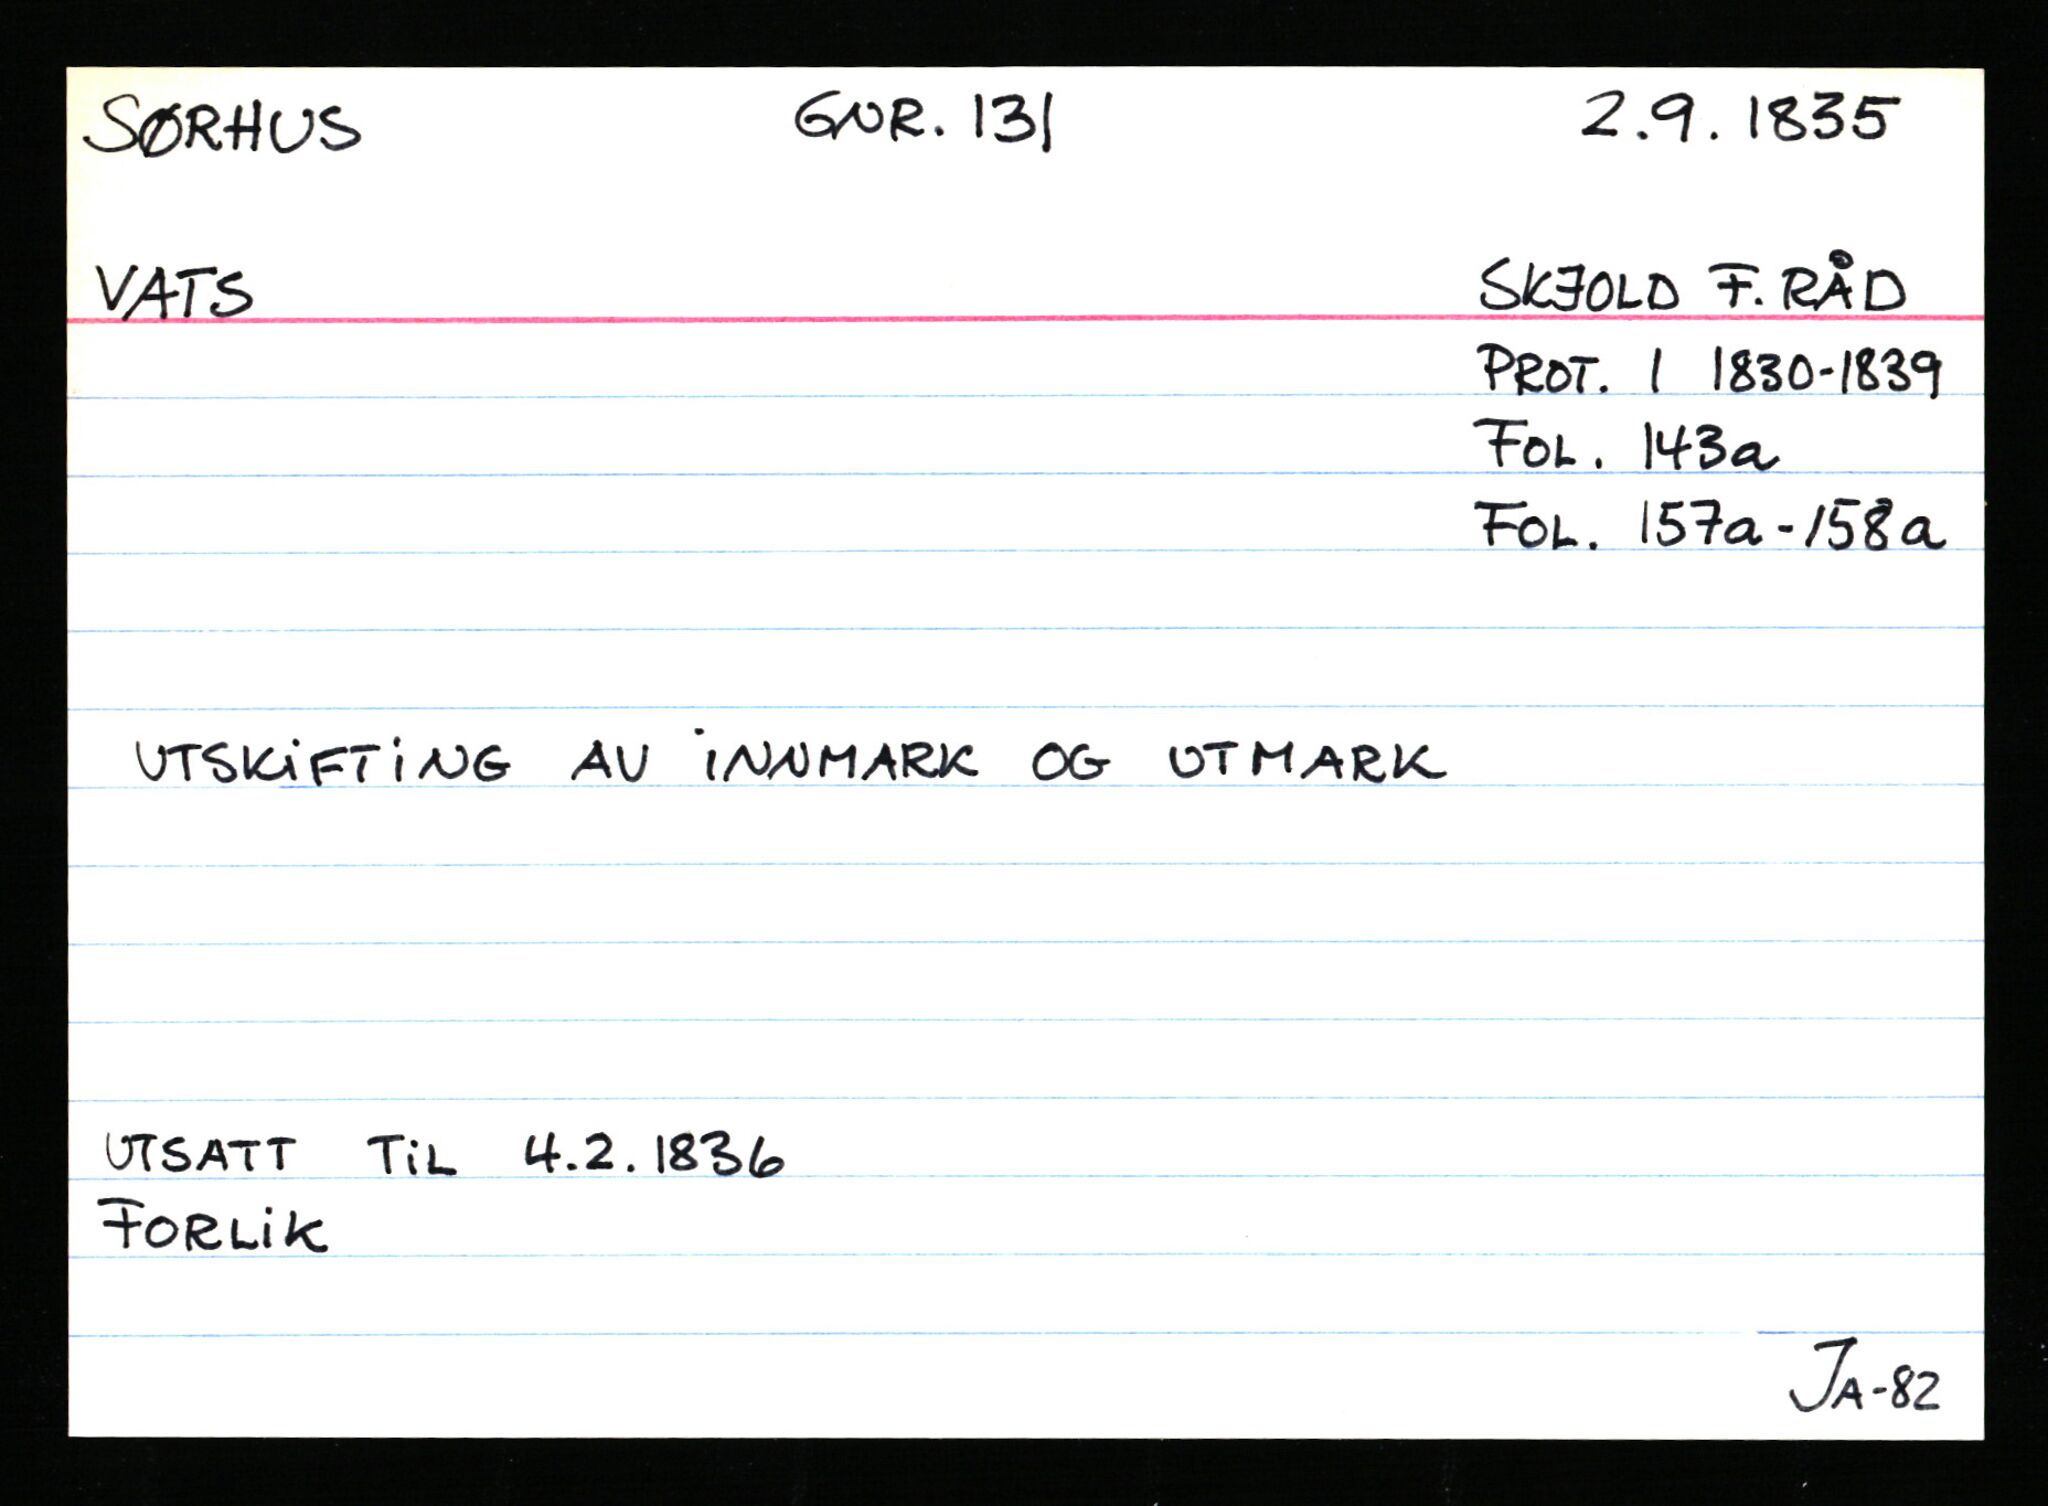 SØRHUS GNR. 131 2.9.1835
VATS SKJOLD F.RÅD
PROT. 1 1830-1839
FOL. 143a
FOL. 157a-158a
UTSKiFTiNG AV iNNMARK OG UTMARK
UTSATT TiL 4.2.1836
FORLiK
JA-82